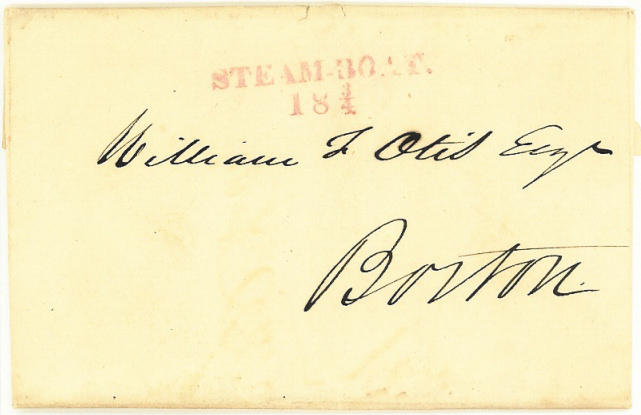 STEAM-BOAT.
18 3/4
William F Otis Esqr
Boston